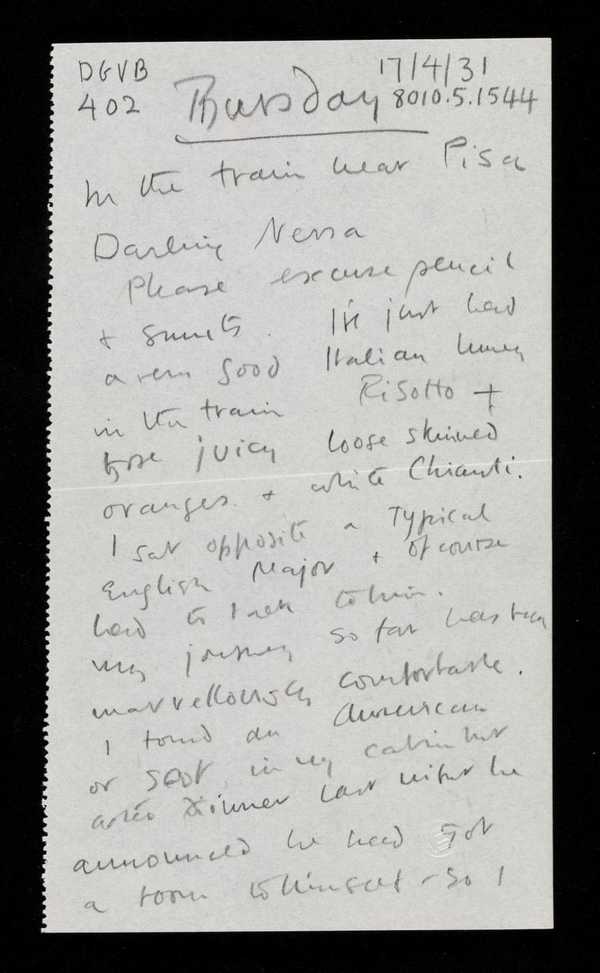 DGVB 17/4/31
402 Thursday 8010.5.1544
In the train near Pisa
Darling Nessa
Please excuse pencil
+ smuts. I've just had
a very good Italian lunch
in the train Risotto +
those juicy loose skinned
oranges + white Chianti.
I sat opposite a Typical
English Major + of course
had to talk to him.
My journey so far has been
marvellously comfortable.
I found an American
or Scot in my cabin but
after dinner last night he
announced he had got
a room to himself - so I